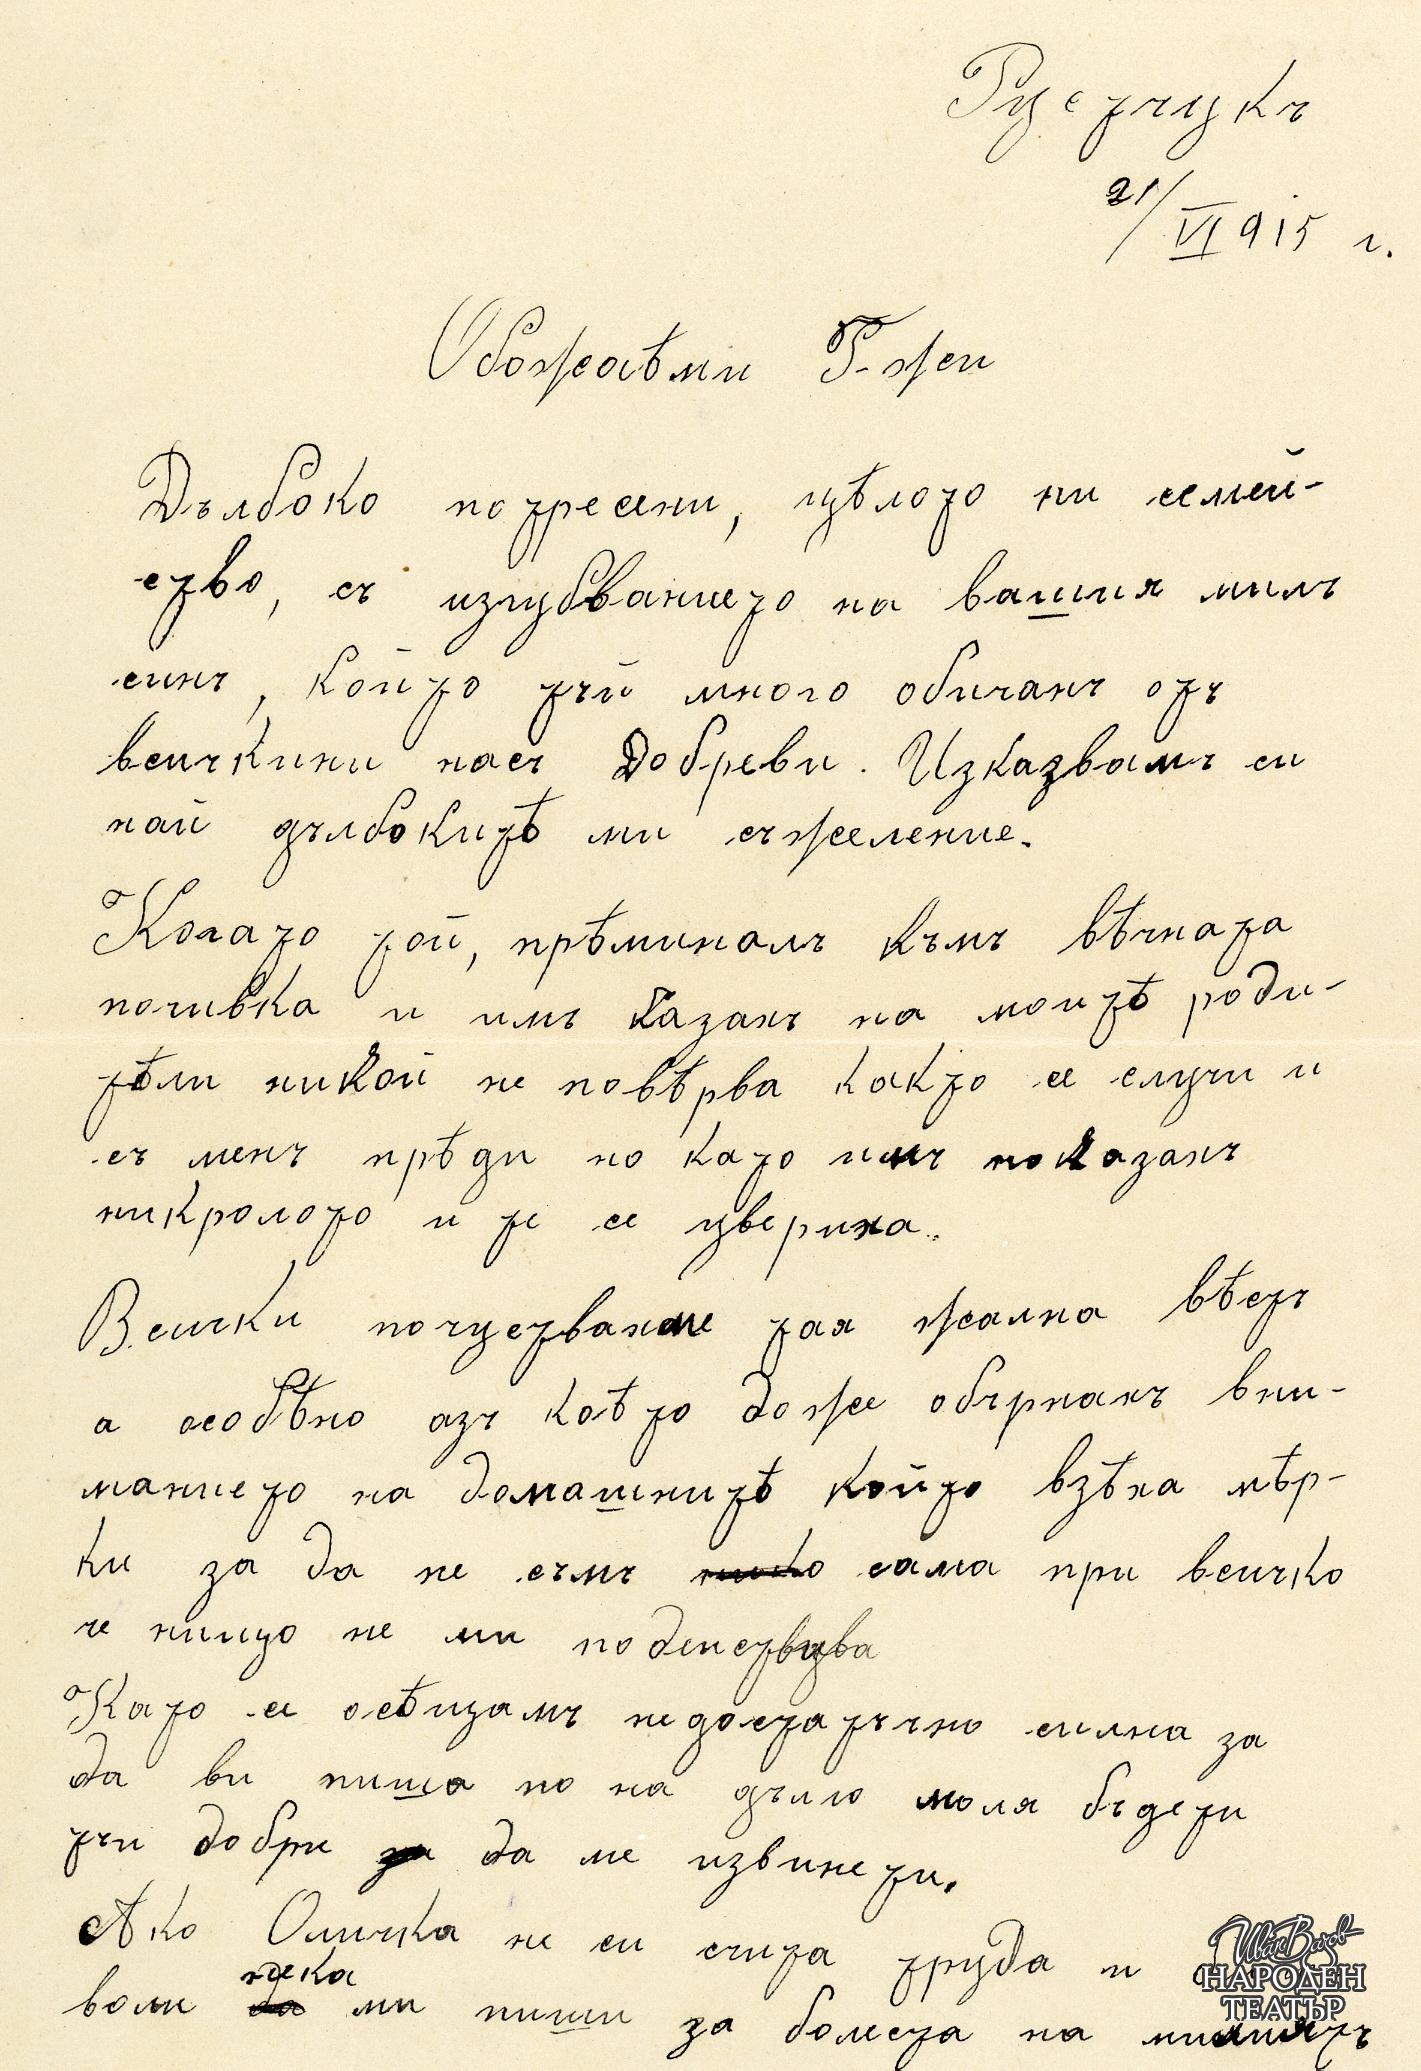 Русчукъ
21/VI 915 г.
Обожаѣми Г-жи
Дълбоко потресени, цѣлото ни семей-
ство, съ изгубванието на вашия милъ
синъ, който тъй много обичанъ отъ
всичкини насъ Добреви. Изказвамъ си
най дълбокитѣ ми съжеление.
Когато той, прѣминалъ къмъ вѣчната
почивка и имъ казахъ на моитѣ роди-
тѣли никой не повѣрва както се случи и
съ менъ прѣди но като имъ показахъ
никролото и те се увериха.
Всички почуствахме тая жална вѣсть
а особѣно азъ коѣто даже обърнахъ вни-
манието на домашнитѣ който взѣха мѣр-
ки за да не съмъ сама при всичко
че нищо не ми подействува
Като се осѣщамъ недостатъчно силна за
да ви пиша по на дълго моля бъдети
тъй добри да ме извинети.
Ако Оличка не си счита труда и
воли нека ми пиши за болеста на милиятъ
Иван Вазов
НАРОДЕН
ТЕАТЪР